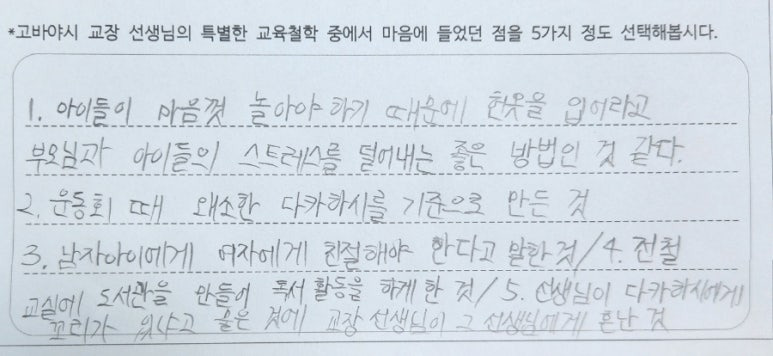 *고바야시 교장 선생님의 특별한 교육철학 중에서 마음에 들었던 점을 5가지 정도 선택해봅시다.
1. 아이들이 마음껏 놀아야 하기 때문에 헌옷을 입어라고
부모님과 아이들의 스트레스를 덜어내는 좋은 방법인 것 같다.
2. 운동회 때 왜소한 다카하시를 기준으로 만든 것
3. 남자아이에게 여자에게 친절해야 한다고 말한 것/4. 전철
교실에 도서관을 만들어 독서 활동을 하게 한 것/5. 선생님이 다카하시에게
꼬리가 있냐고 물은 것에 교장 선생님이 그 선생님에게 혼난 것